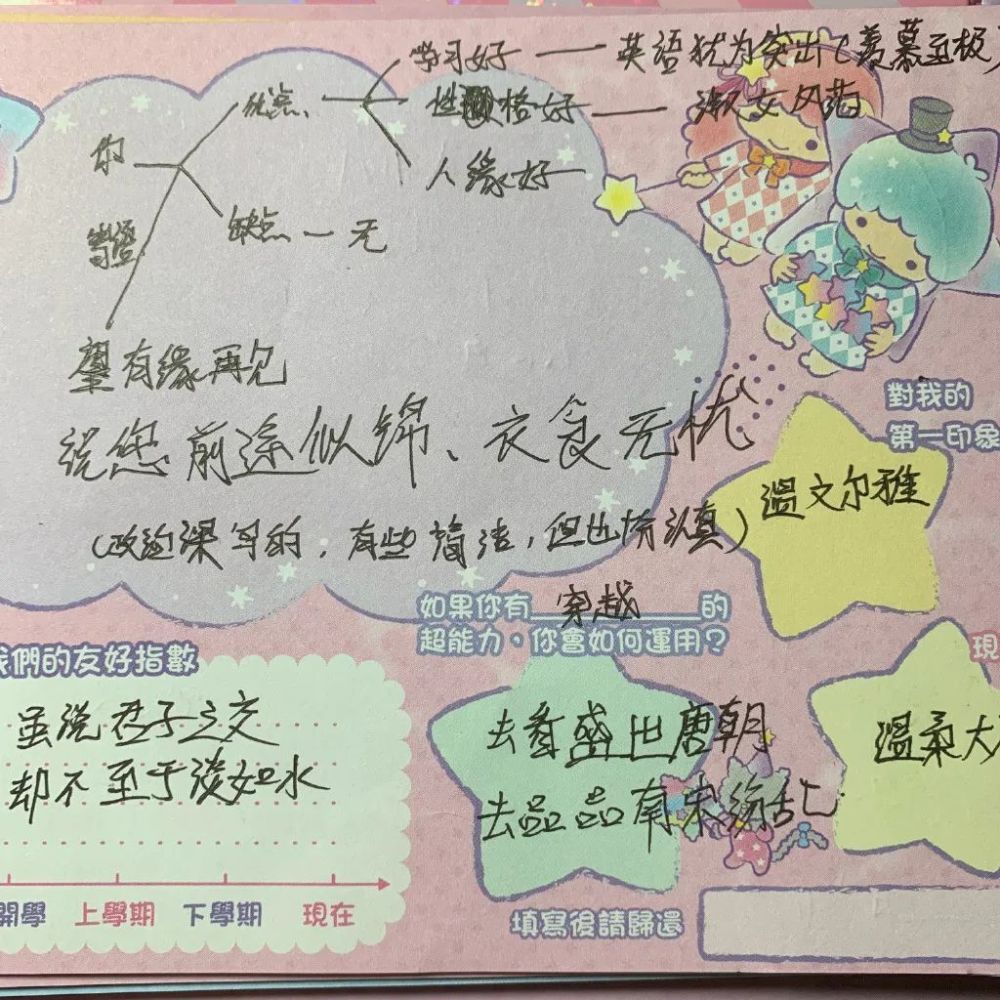 学习好 — 英语犹为突出(羡慕至极)
优点
性格好 — 淑女风范
你
人缘好
缺点 — 无
寄语
望有缘再见
祝您前途似锦、衣食无忧
(政治课写的,有些简洁,但也份认真)
對我的
第一印象
溫文尔雅
如果你有 穿越 的
超能力,你會如何運用?
去看盛世唐朝
去品品南宋纷乱
我們的友好指數
虽说君子之交
却不至于淡如水
開學 上學期 下學期 現在
現
溫柔大
填寫後請歸還